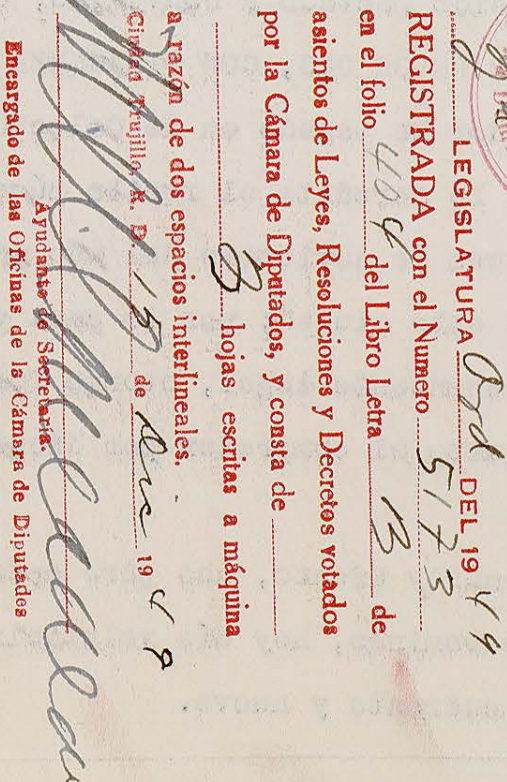 LEGISLATURA Ord DEL 1949
REGISTRADA con el Numero 5173
en el folio 404 del Libro Letra B de
asientos de Leyes, Resoluciones y Decretos votados
por la Cámara de Diputados, y consta de
3 hojas escritas a máquina
a razón de dos espacios interlineales.
Ciudad Trujillo, R. D. 15 de Dic 1949
Ayudante de Secretaría
Encargado de las Oficinas de la Cámara de Diputados